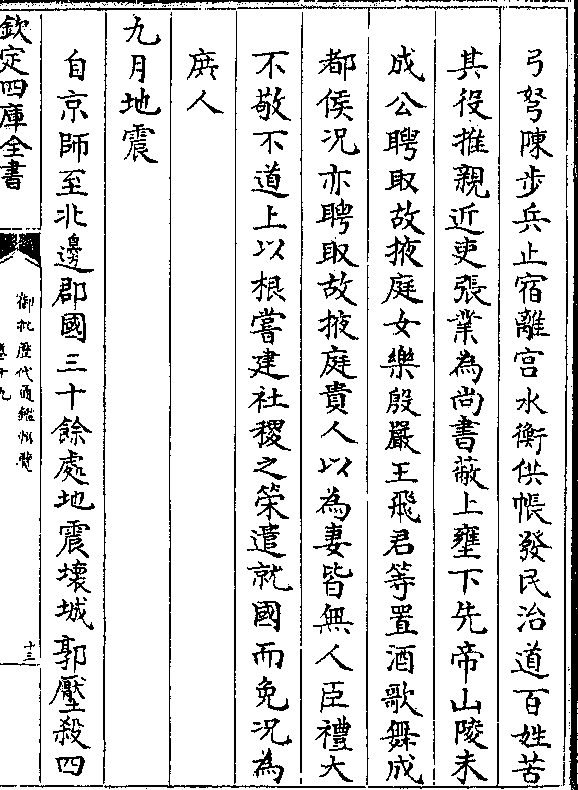 弓弩陳步兵止宿離宮水衡供帳發民治道百姓苦
其役推親近吏張業為尚書蔽上壅下先帝山陵未
成公聘取故掖庭女樂殷嚴王飛君等置酒歌舞成
都侯況亦聘取故掖庭貴人以為妻皆無人臣禮大
不敬不道上以根嘗建社稷之策遣就國而免況為
庶人
九月地震
自京師至北邊郡國三十餘處地震壞城郭壓殺四
欽定四庫全書
御批歷代通鑑輯覽
卷十九
十三